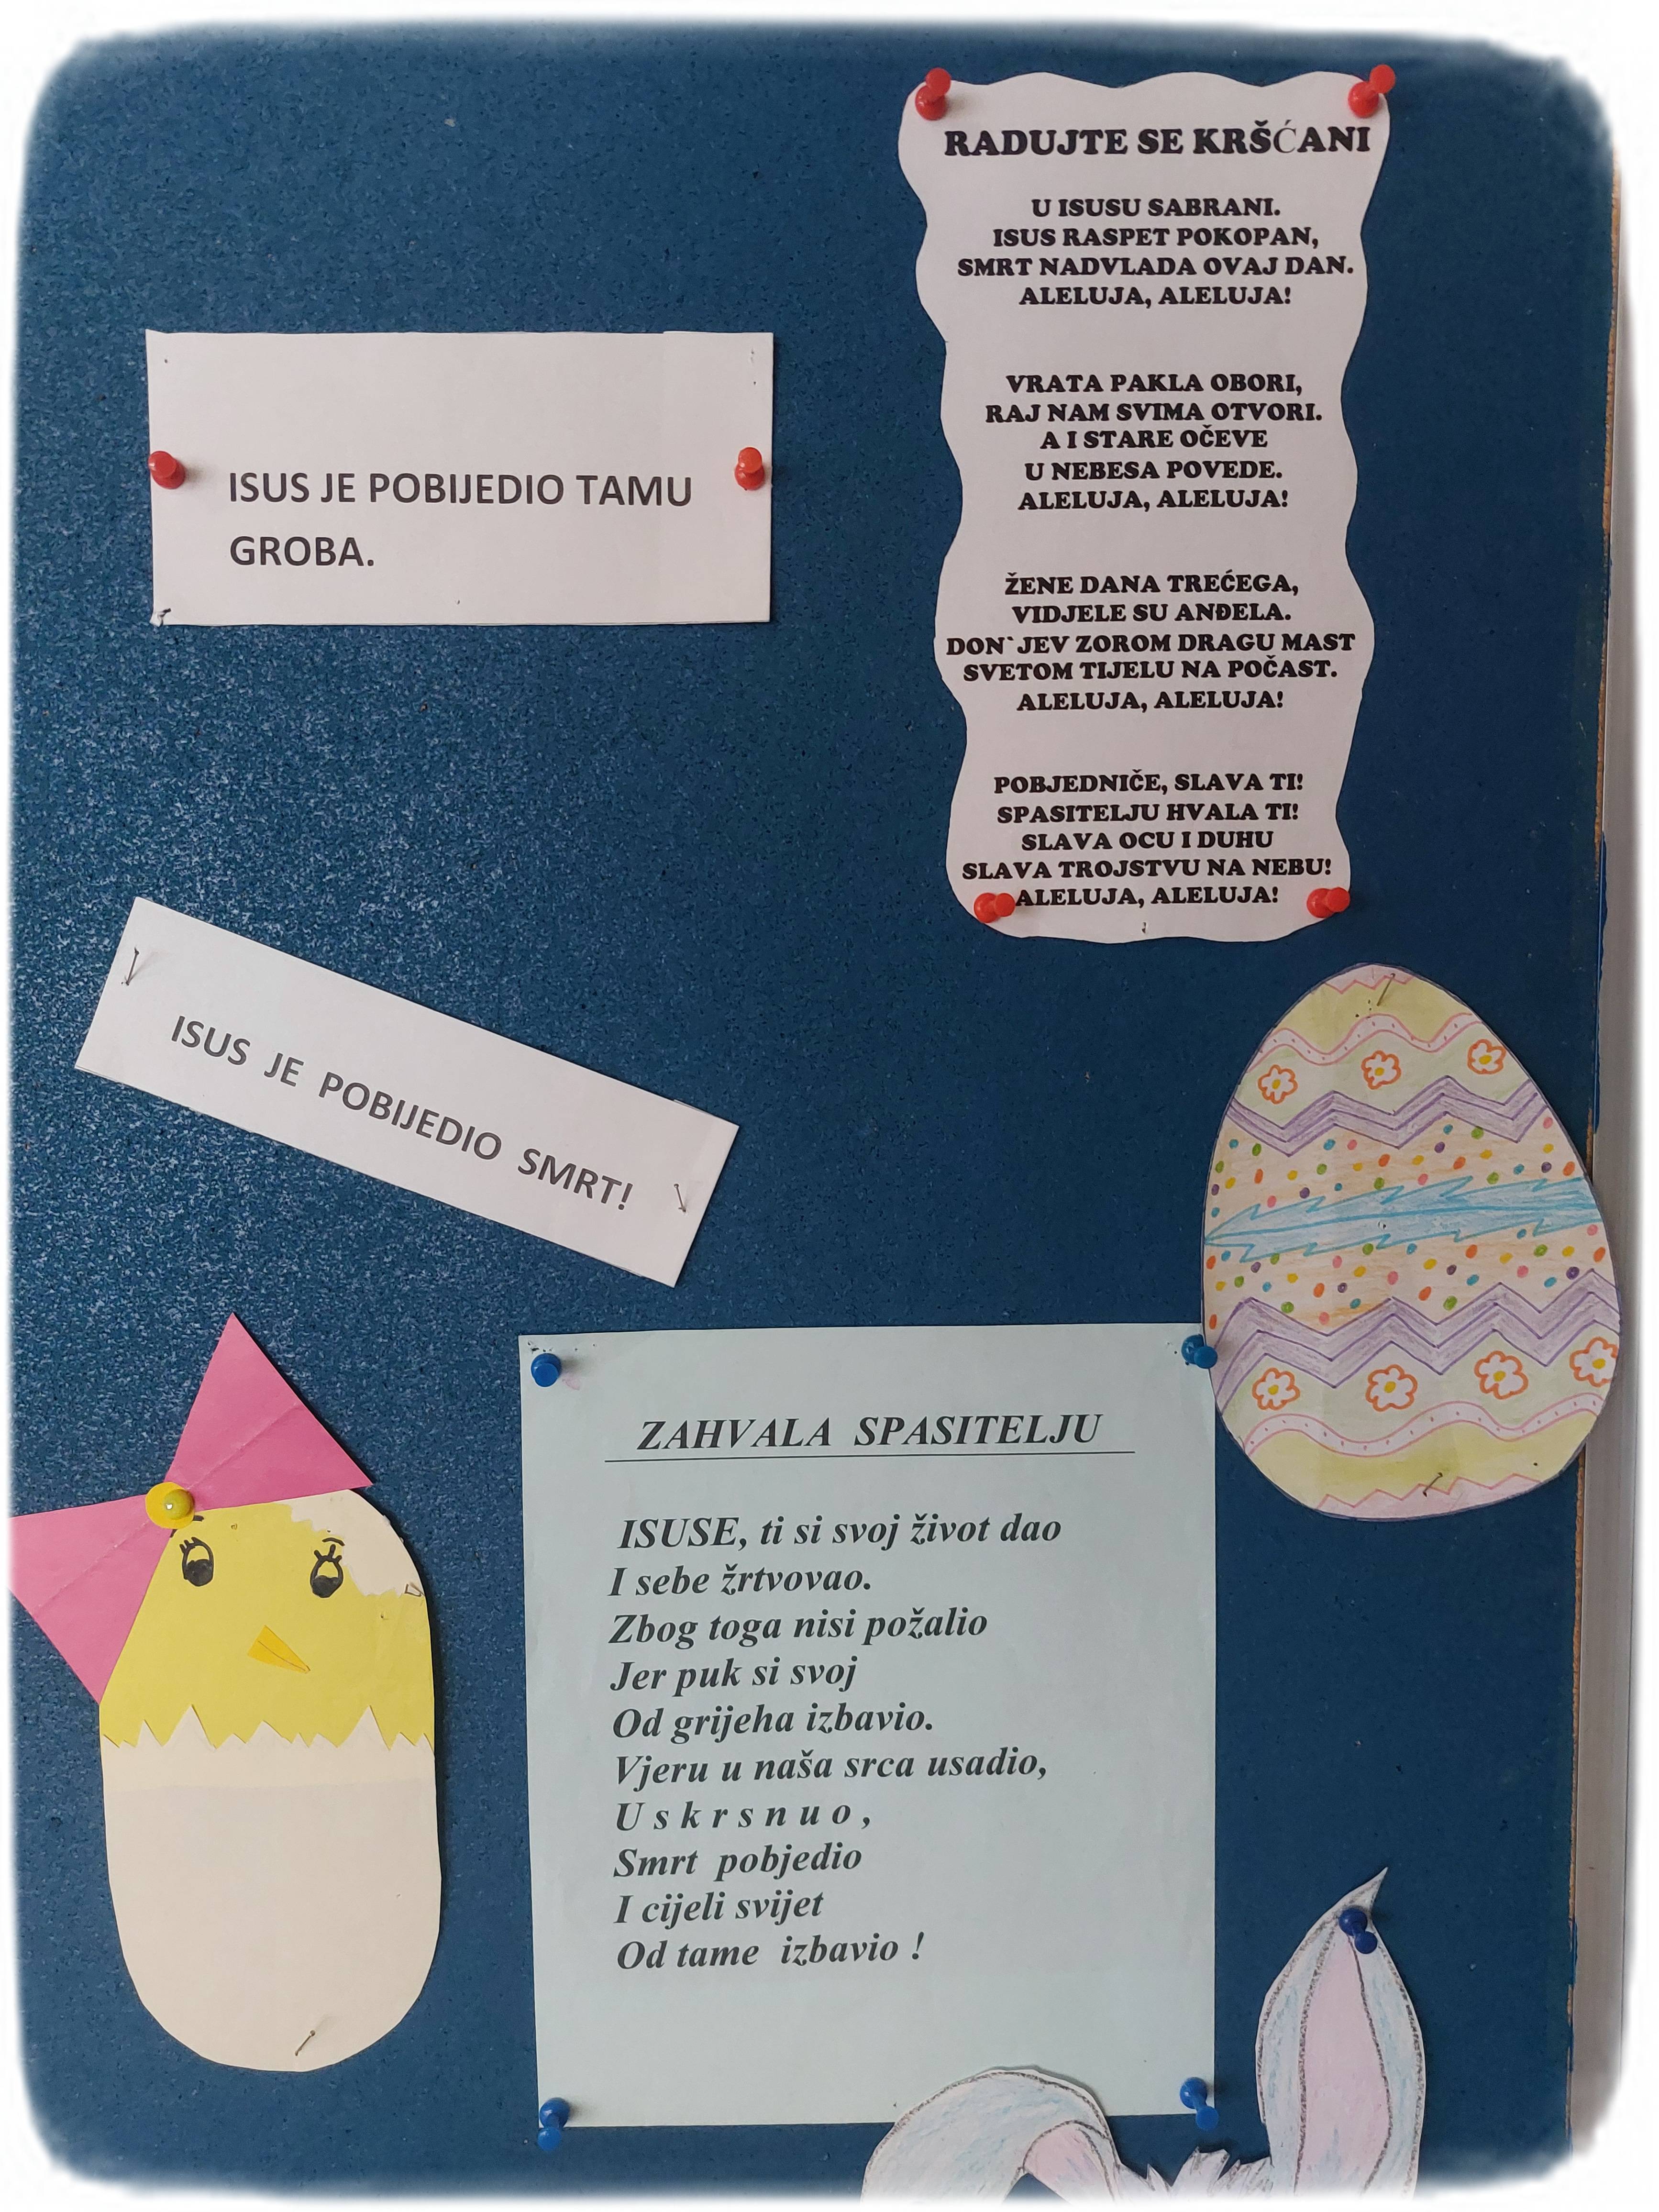 RADUJTE SE KRŠĆANI
U ISUSU SABRANI.
ISUS RASPET POKOPAN,
SMRT NADVLADA OVAJ DAN.
ALELUJA, ALELUJA!
VRATA PAKLA OBORI,
RAJ NAM SVIMA OTVORI.
A I STARE OČEVE
U NEBESA POVEDE.
ALELUJA, ALELUJA!
ŽENE DANA TREĆEGA,
VIDJELE SU ANĐELA.
DON`JEV ZOROM DRAGU MAST
SVETOM TIJELU NA POČAST.
ALELUJA, ALELUJA!
POBJEDNIČE, SLAVA TI!
SPASITELJU HVALA TI!
SLAVA OCU I DUHU
SLAVA TROJSTVU NA NEBU!
ALELUJA, ALELUJA!
ISUS JE POBIJEDIO TAMU
GROBA.
ISUS JE POBIJEDIO SMRT!
ZAHVALA SPASITELJU
ISUSE, ti si svoj život dao
I sebe žrtvovao.
Zbog toga nisi požalio
Jer puk si svoj
Od grijeha izbavio.
Vjeru u naša srca usadio,
U s k r s n u o ,
Smrt pobjedio
I cijeli svijet
Od tame izbavio !